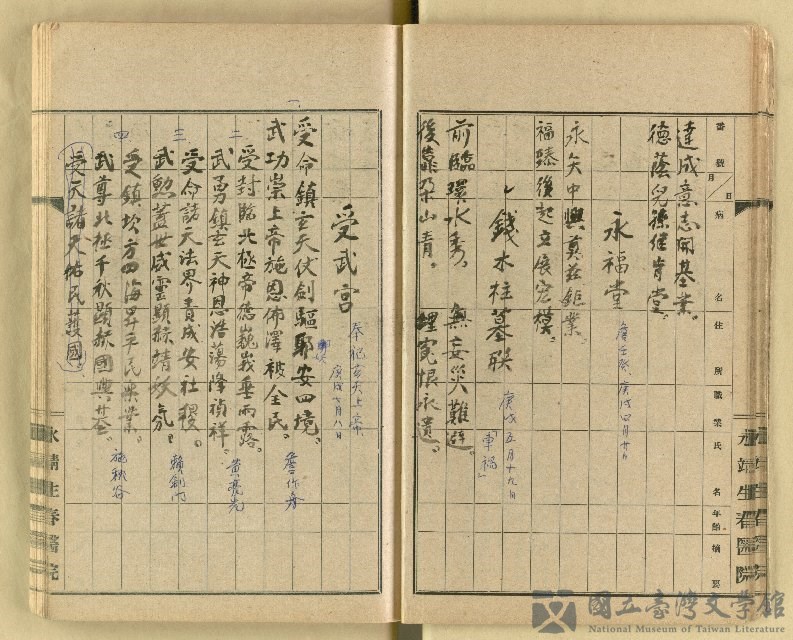 番號
月 日
病名
住所
職業
氏名
年齡
摘要
達成意志開基業。
德蔭兒孫繼肯堂。
永福堂
庚戌四月廿日
永矢中興莫茲鉅業。
福臻後起立展宏模。
錢水柱墓聯
庚戌五月十九日
「車禍」
前臨環水秀。 無妄災難避。
後靠朶山青。 埋冤恨永遺。
永靖生春醫院
受武宮
奉祀玄天上帝
庚戌七月八日
一
受命鎮玄天仗劍驅邪安四境。
武功崇上帝施恩佈澤被全民。
詹作舟
二
受封臨北極帝德巍峩垂雨露。
武勇鎮玄天神恩浩蕩降禎祥。
黃亮先
三
受命諸天法界責成安社稷。
武勳蓋世威靈顯赫靖妖氛。
賴劍門
四
受鎮坎方四海昇平民樂業。
武尊北極千秋顯赫國興基。
施秋谷
諸天佑民護國
永靖生春醫院
國立臺灣文學館
National Museum of Taiwan Literature